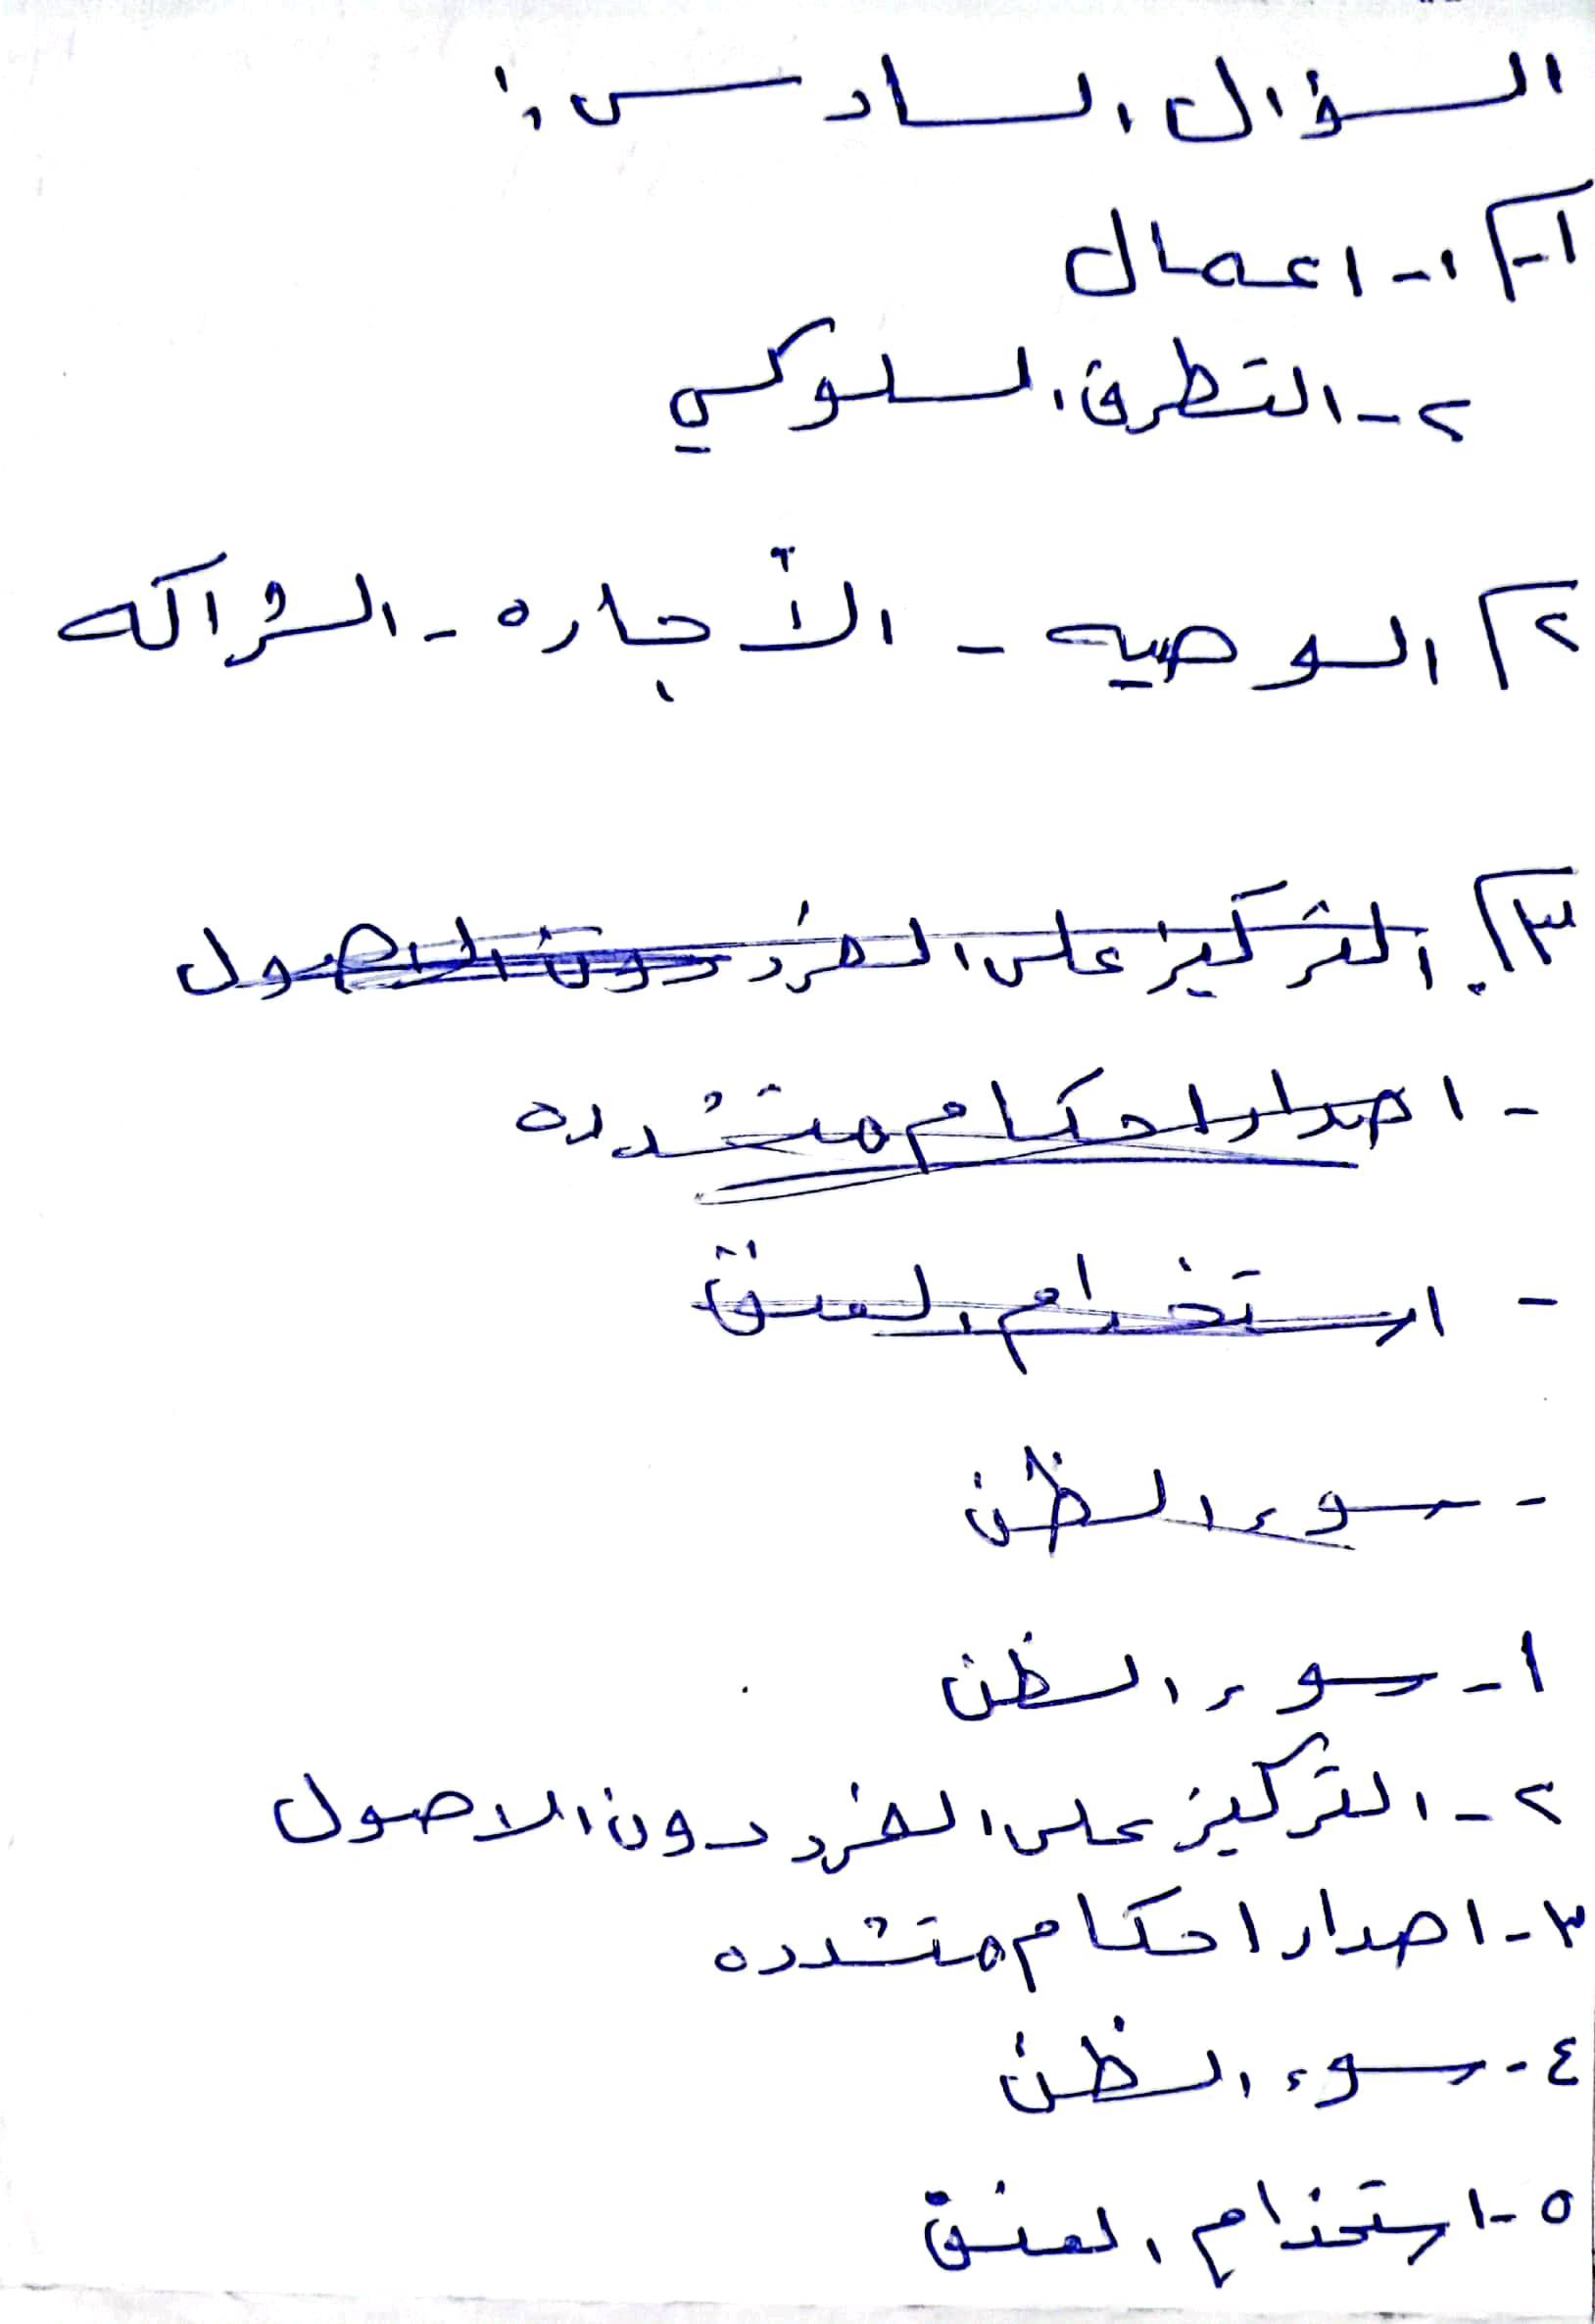 السؤال السادس :
١- ١- اعمال
٢- التطرق السلوكي
٢ الوصيه - التجاره - الشراكه
٣. التركيز على الفرد دون الاصول
- اصدار احكام متشدده
- استخدام العنق
- سوء الظن
١- سوء الظن
٢- التركيز على الفرد دون الاصول
٣- اصدار احكام متشدده
٤- سوء الظن
٥- استخذام العنق